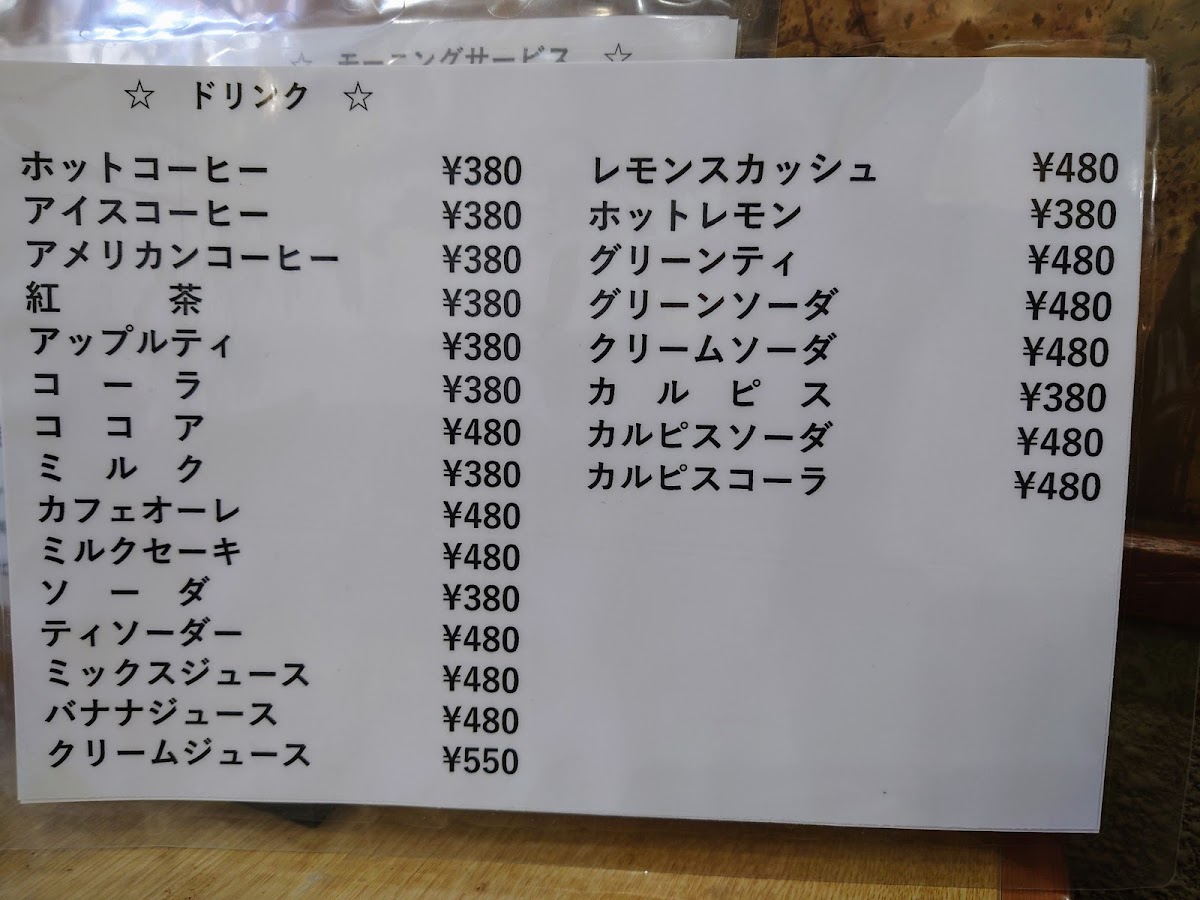 ☆ モーニングサービス ☆
☆ ドリンク ☆
ホットコーヒー ¥380
アイスコーヒー ¥380
アメリカンコーヒー ¥380
紅　　　茶 ¥380
アップルティ ¥380
コ　ー　ラ ¥380
コ　コ　ア ¥480
ミ　ル　ク ¥380
カフェオーレ ¥480
ミルクセーキ ¥480
ソ　ー　ダ ¥380
ティソーダー ¥480
ミックスジュース ¥480
バナナジュース ¥480
クリームジュース ¥550
レモンスカッシュ ¥480
ホットレモン ¥380
グリーンティ ¥480
グリーンソーダ ¥480
クリームソーダ ¥480
カ　ル　ピ　ス ¥380
カルピスソーダ ¥480
カルピスコーラ ¥480